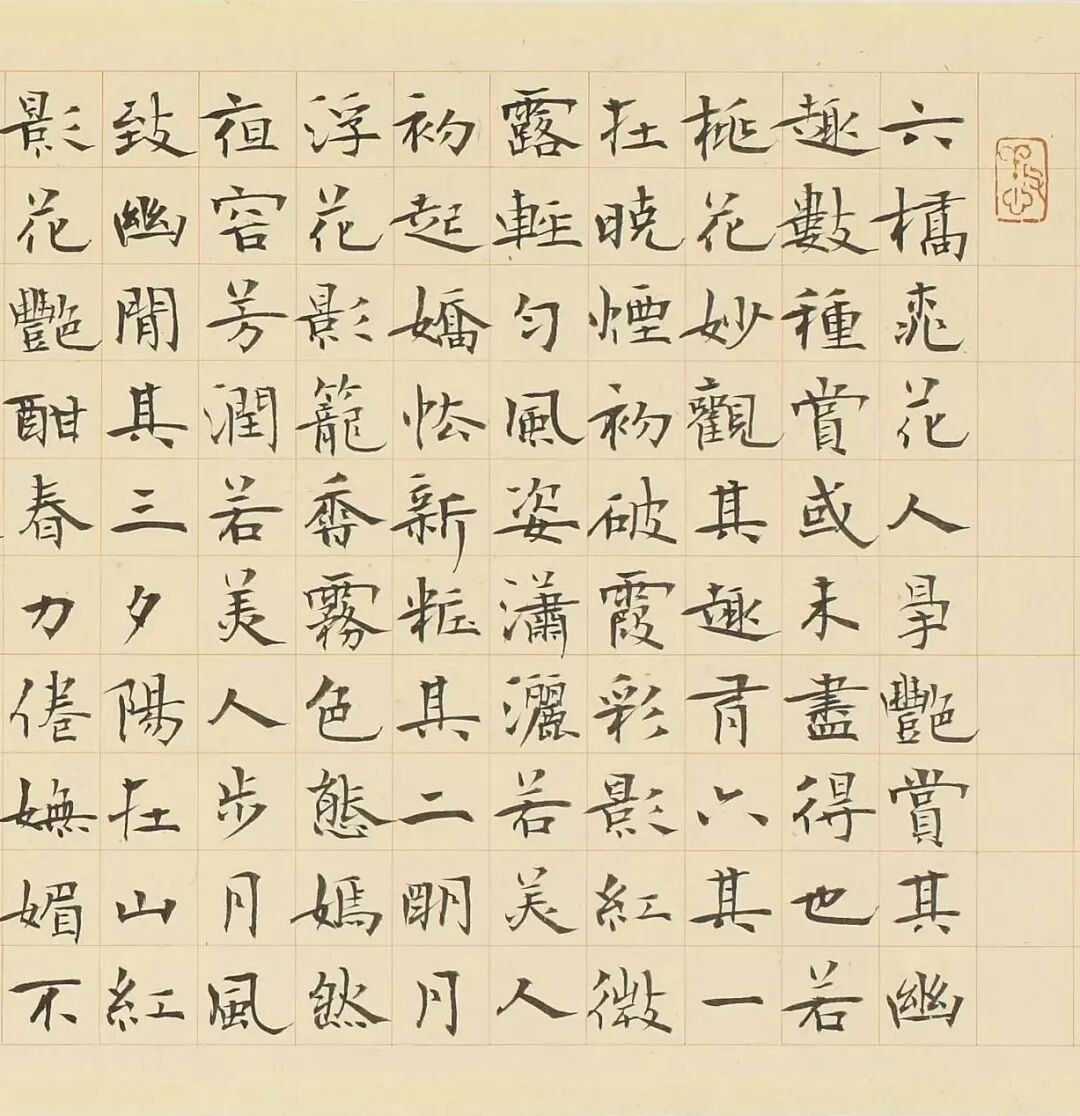 六橋桃花人爭艷賞其幽
趣數種賞或未盡得也若
桃花妙觀其趣有六其一
在曉煙初破霞彩影紅微
露輕勻風姿瀟灑若美人
初起嬌怯新粧其二明月
浮花影籠香霧色態嫣然
夜容芳潤若美人步月風
致幽閒其三夕陽在山紅
影花艷酣春力倦嫵媚不